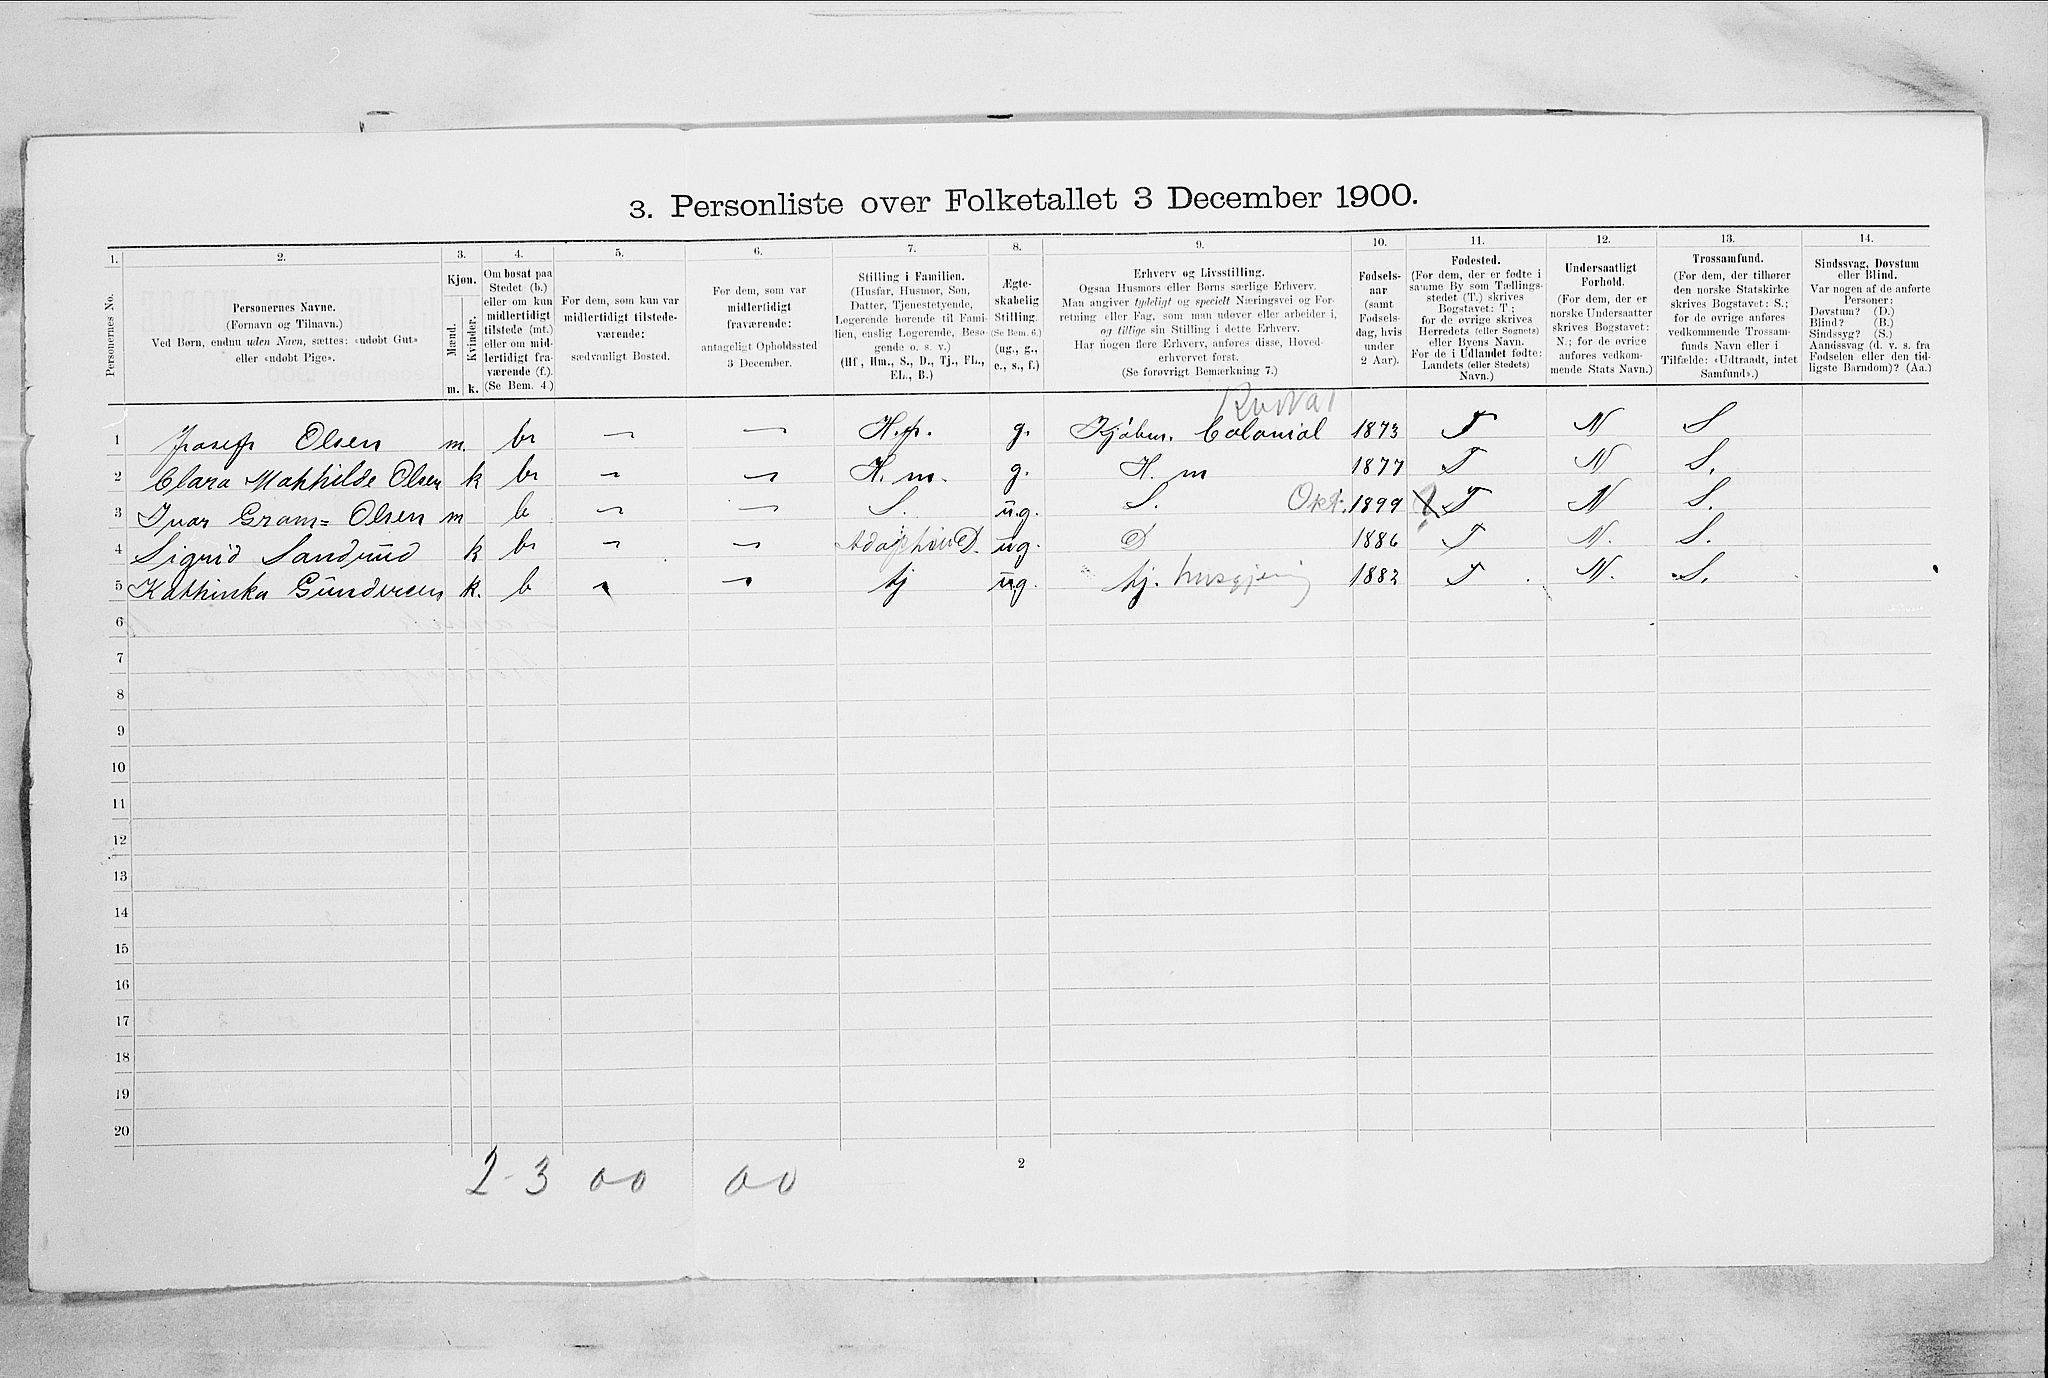 3. Personliste over Folketallet 3 December 1900.
1. 2. 3. 4. 5. 6. 7. 8. 9. 10. 11. 12. 13. 14.
Personernes No.
Personernes Navne.
(Fornavn og Tilnavn.)
Ved Børn, endnu uden Navn, sættes: «udøbt Gut»
eller «udøbt Pige».
Kjøn.
Mænd.
Kvinder.
m. k.
Om bosat paa
Stedet (b.)
eller om kun
midlertidigt
tilstede (mt.)
eller om mid-
lertidigt fra-
værende (f.).
(Se Bem. 4.)
For dem, som kun var
midlertidigt tilstede-
værende:
sædvanligt Bosted.
For dem, som var
midlertidigt
fraværende:
antageligt Opholdssted
3 December.
Stilling i Familien.
(Husfar, Husmor, Søn,
Datter, Tjenestetyende,
Logerende hørende til Fami-
lien, enslig Logerende, Besø-
gende o. s. v.)
(Hf., Hm., S., D., Tj., FL.,
EL., B.)
Ægte-
skabelig
Stilling.
(Se Bem. 6.)
(ug., g.,
e., s., f.)
Erhverv og Livsstilling.
Ogsaa Husmors eller Børns særlige Erhverv.
Man angiver tydeligt og specielt Næringsvei og For-
retning eller Fag, som man udøver eller arbeider i,
og tillige sin Stilling i dette Erhverv.
Har nogen flere Erhverv, anføres disse, Hoved-
erhvervet først.
(Se forøvrigt Bemærkning 7.)
Fødsels-
aar
(samt
Fødsels-
dag, hvis
under
2 Aar).
Fødested.
(For dem, der er fødte i
samme By som Tællings-
stedet (T.) skrives
Bogstavet: T.;
for de øvrige skrives
Herredets (eller Sognets)
eller Byens Navn.
For de i Udlandet fødte:
Landets (eller Stedets)
Navn.)
Undersaatligt
Forhold.
(For dem, der er
norske Undersaatter
skrives Bogstavet:
N.; for de øvrige
anføres vedkom-
mende Stats Navn.)
Trossamfund.
(For dem, der tilhører
den norske Statskirke
skrives Bogstavet: S.;
for de øvrige anføres
vedkommende Trossam-
funds Navn eller i
Tilfælde: «Udtraadt, intet
Samfund».)
Sindssvag, Døvstum
eller Blind.
Var nogen af de anførte
Personer:
Døvstum? (D.)
Blind? (B.)
Sindssyg? (S.)
Aandssvag (d. v. s. fra
Fødselen eller den tid-
ligste Barndom)? (Aa.)
1 Josef Olsen m. b. – – H.f. g. Kjøbm. Colonial 1873 T N S
2 Clara Mathilde Olsen k b. – – H.m. g. H.m 1877 T N S.
3 Ivar Gram= Olsen m b – – S. u.g. S. Okt. 1899 T N S.
4 Sigrid Sandrud k b. – – D. ug. D 1886 T N. S.
5 Kathinka Gundersen k. b – – tj ug. tj. husgjerning 1882 T N. S.
6
7
8
9
10
11
12
13
14
15
16
17
18
19
20
2 - 3 00 00
2